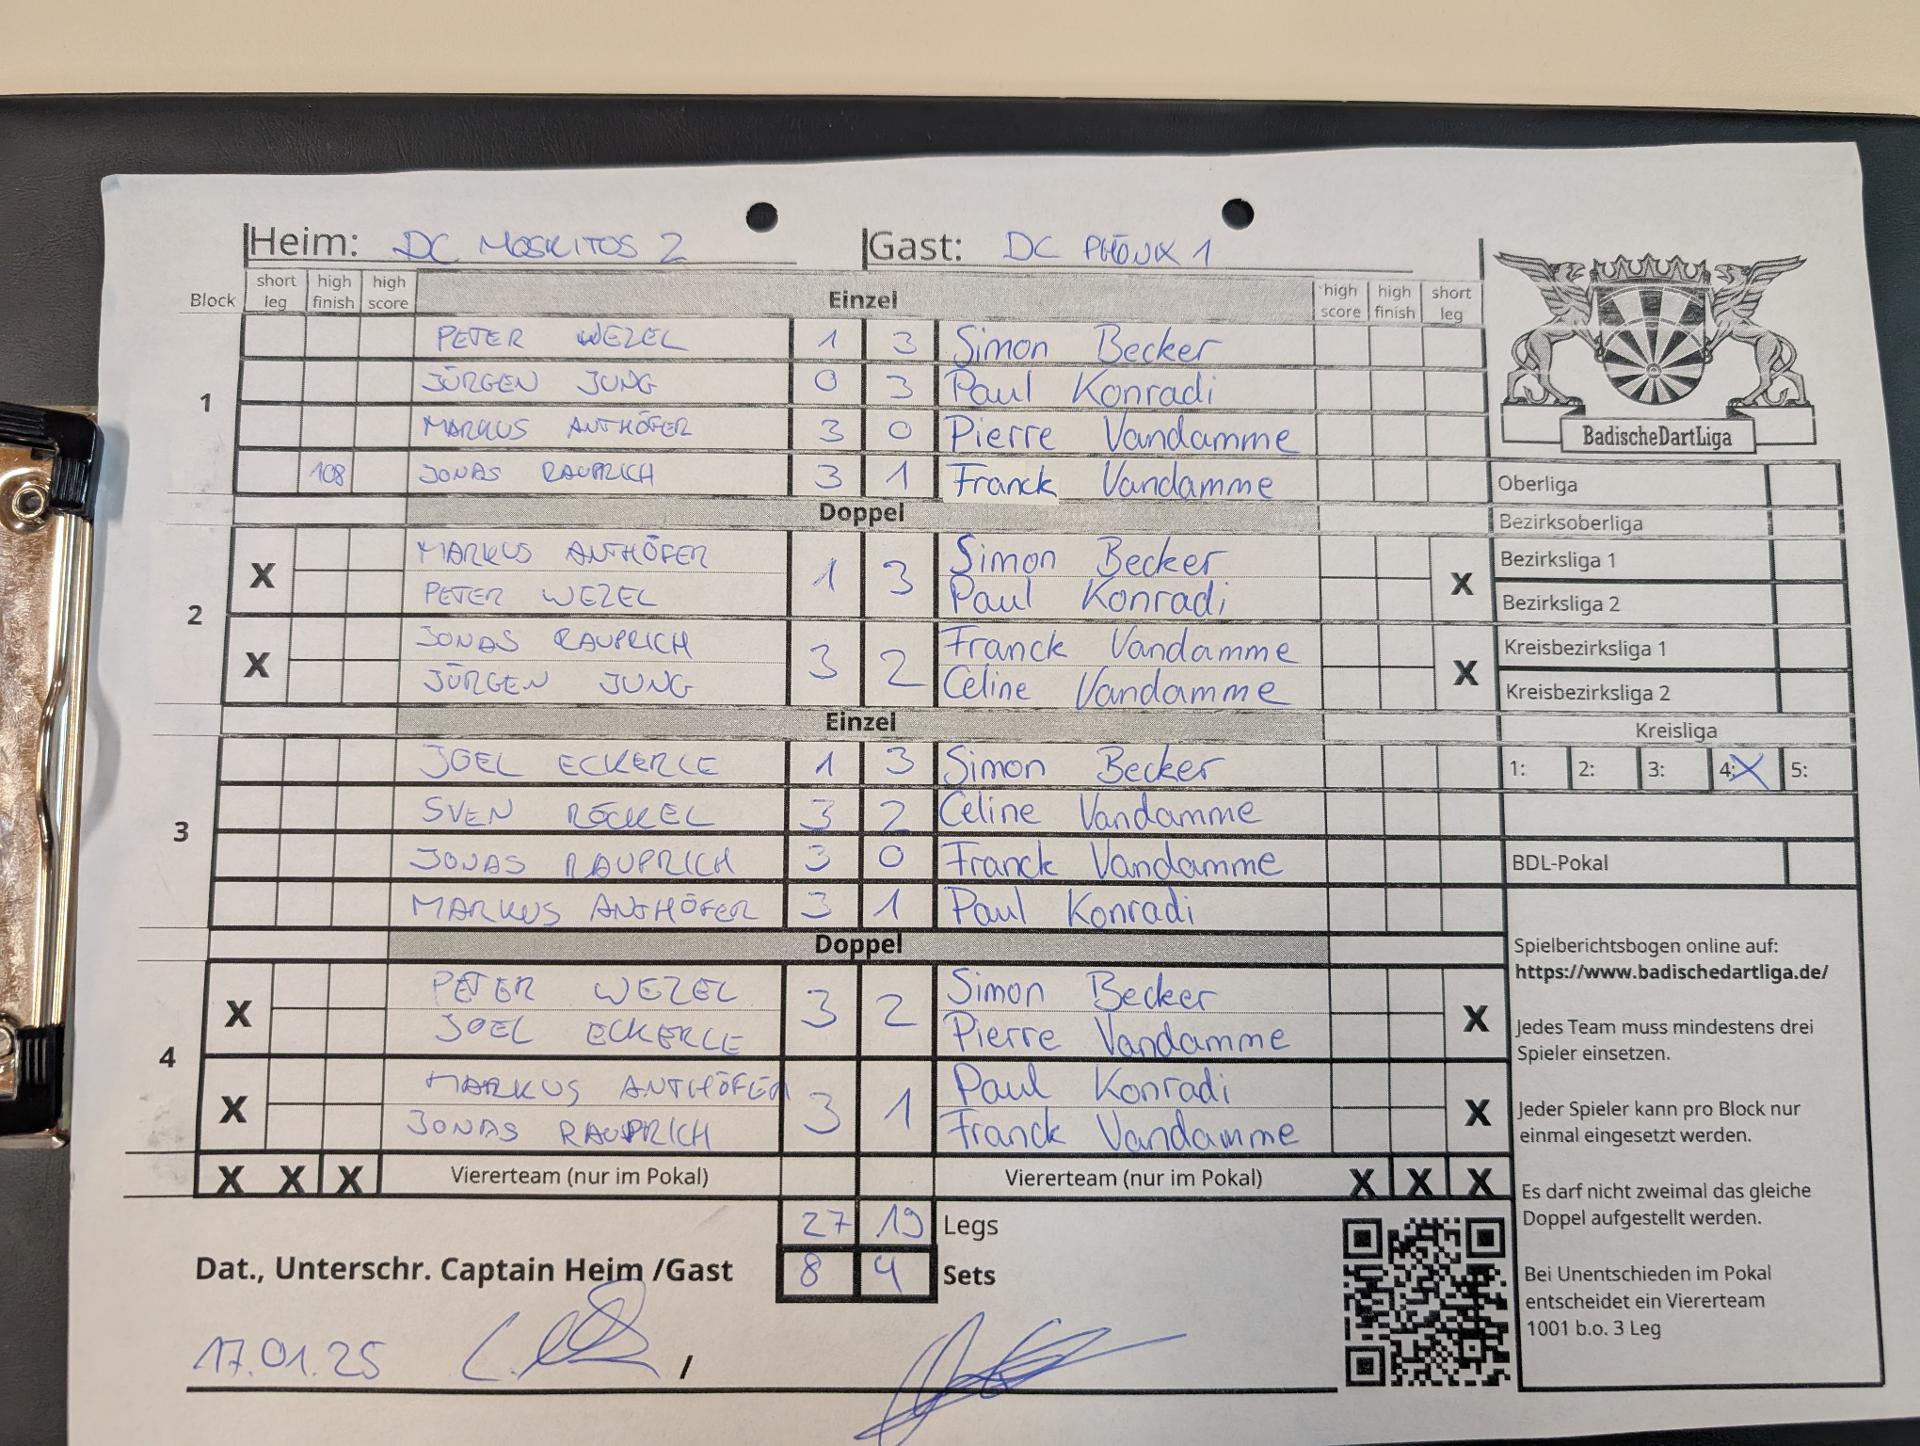 Heim: DC MOSKITOS 2 Gast: DC PHÖNIX 1
Block short leg high finish high score Einzel high score high finish short leg
1
PETER WEZEL 1 3 Simon Becker
JÜRGEN JUNG 0 3 Paul Konradi
MARKUS ANTHÖFER 3 0 Pierre Vandamme
108 JONAS RAUPRICH 3 1 Franck Vandamme
Doppel
2
X MARKUS ANTHÖFER 1 3 Simon Becker X
PETER WEZEL Paul Konradi
X JONAS RAUPRICH 3 2 Franck Vandamme X
JÜRGEN JUNG Céline Vandamme
Einzel
3
JOEL ECKERLE 1 3 Simon Becker
SVEN RÖCKEL 3 2 Céline Vandamme
JONAS RAUPRICH 3 0 Franck Vandamme
MARKUS ANTHÖFER 3 1 Paul Konradi
Doppel
4
X PETER WEZEL 3 2 Simon Becker X
JOEL ECKERLE Pierre Vandamme
X MARKUS ANTHÖFER 3 1 Paul Konradi X
JONAS RAUPRICH Franck Vandamme
X X X Viererteam (nur im Pokal) Viererteam (nur im Pokal) X X X
27 19 Legs
Dat., Unterschr. Captain Heim /Gast 8 4 Sets
17.01.25 /
BadischeDartLiga
Oberliga
Bezirksoberliga
Bezirksliga 1
Bezirksliga 2
Kreisbezirksliga 1
Kreisbezirksliga 2
Kreisliga
1: 2: 3: 4: X 5:
BDL-Pokal
Spielberichtsbogen online auf:
https://www.badischedartliga.de/
Jedes Team muss mindestens drei
Spieler einsetzen.
Jeder Spieler kann pro Block nur
einmal eingesetzt werden.
Es darf nicht zweimal das gleiche
Doppel aufgestellt werden.
Bei Unentschieden im Pokal
entscheidet ein Viererteam
1001 b.o. 3 Leg